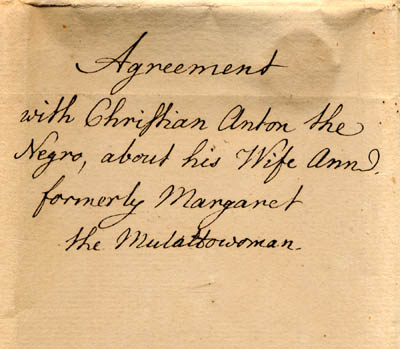 Agreement
with Christian Anton the
Negro, about his Wife Ann.
formerly Margaret
the Mulattowoman.